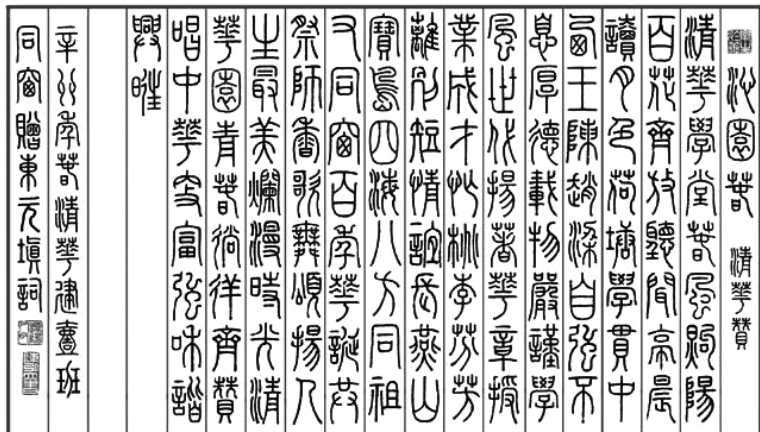 沁園春 清華贊
清華學堂春風煦陽
百花齊放聽聞亭晨
讀月色荷塘學貫中
西王陳趙梁自強不
息厚德載物嚴謹學
風世代揚著華章授
業成才桃李芬芳
離別短情誼長燕山
寶島四海八方同祖
又同窗百年華誕共
祭師歌舞頌揚人
生最美爛漫時光清
華園青春徜徉齊贊
唱中華富強和諧
興旺
辛卯年春清華建壹班
同窗贈東元填詞